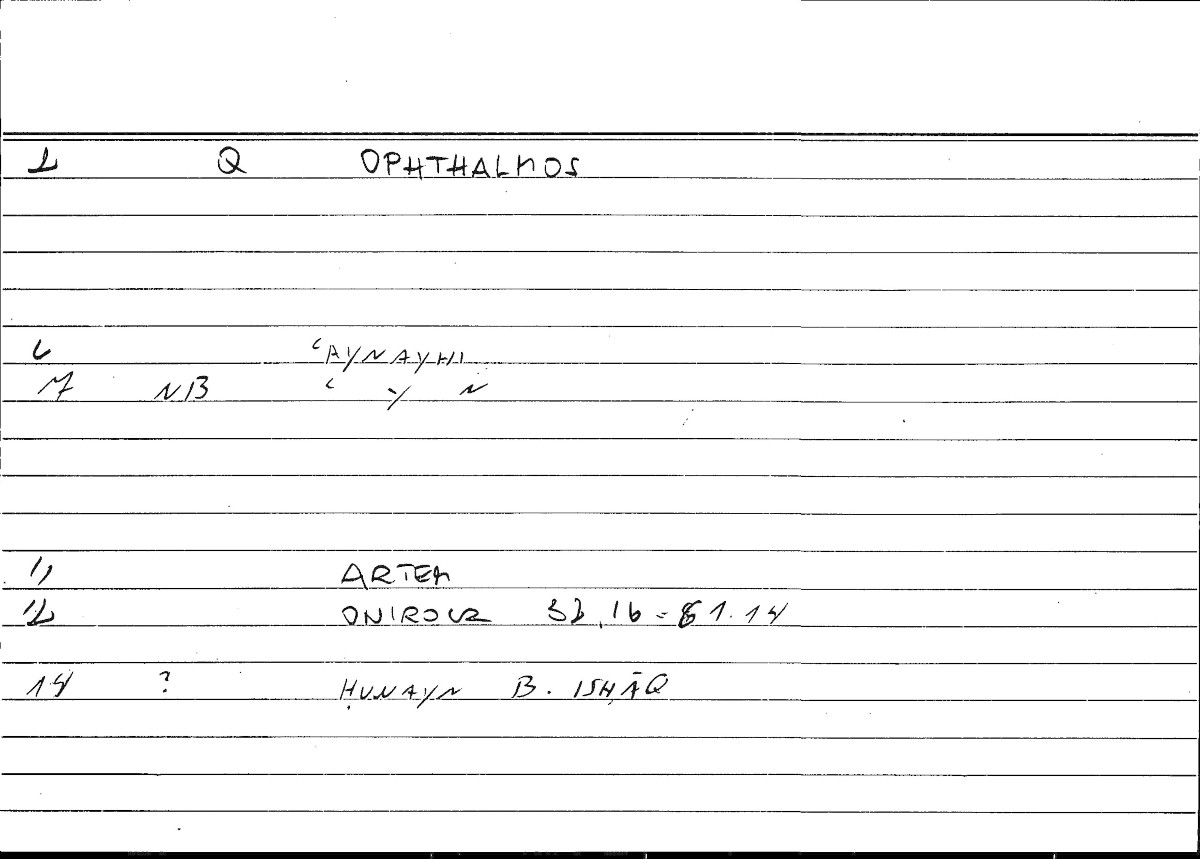 1 Q OPHTHALMOS
6 ʿAYNAYHI
7 NB ʿ Y N
11 ARTEM
12 ONIROCR 32,16 = 61.14
14 ? ḤUNAYN B. ISḤĀQ